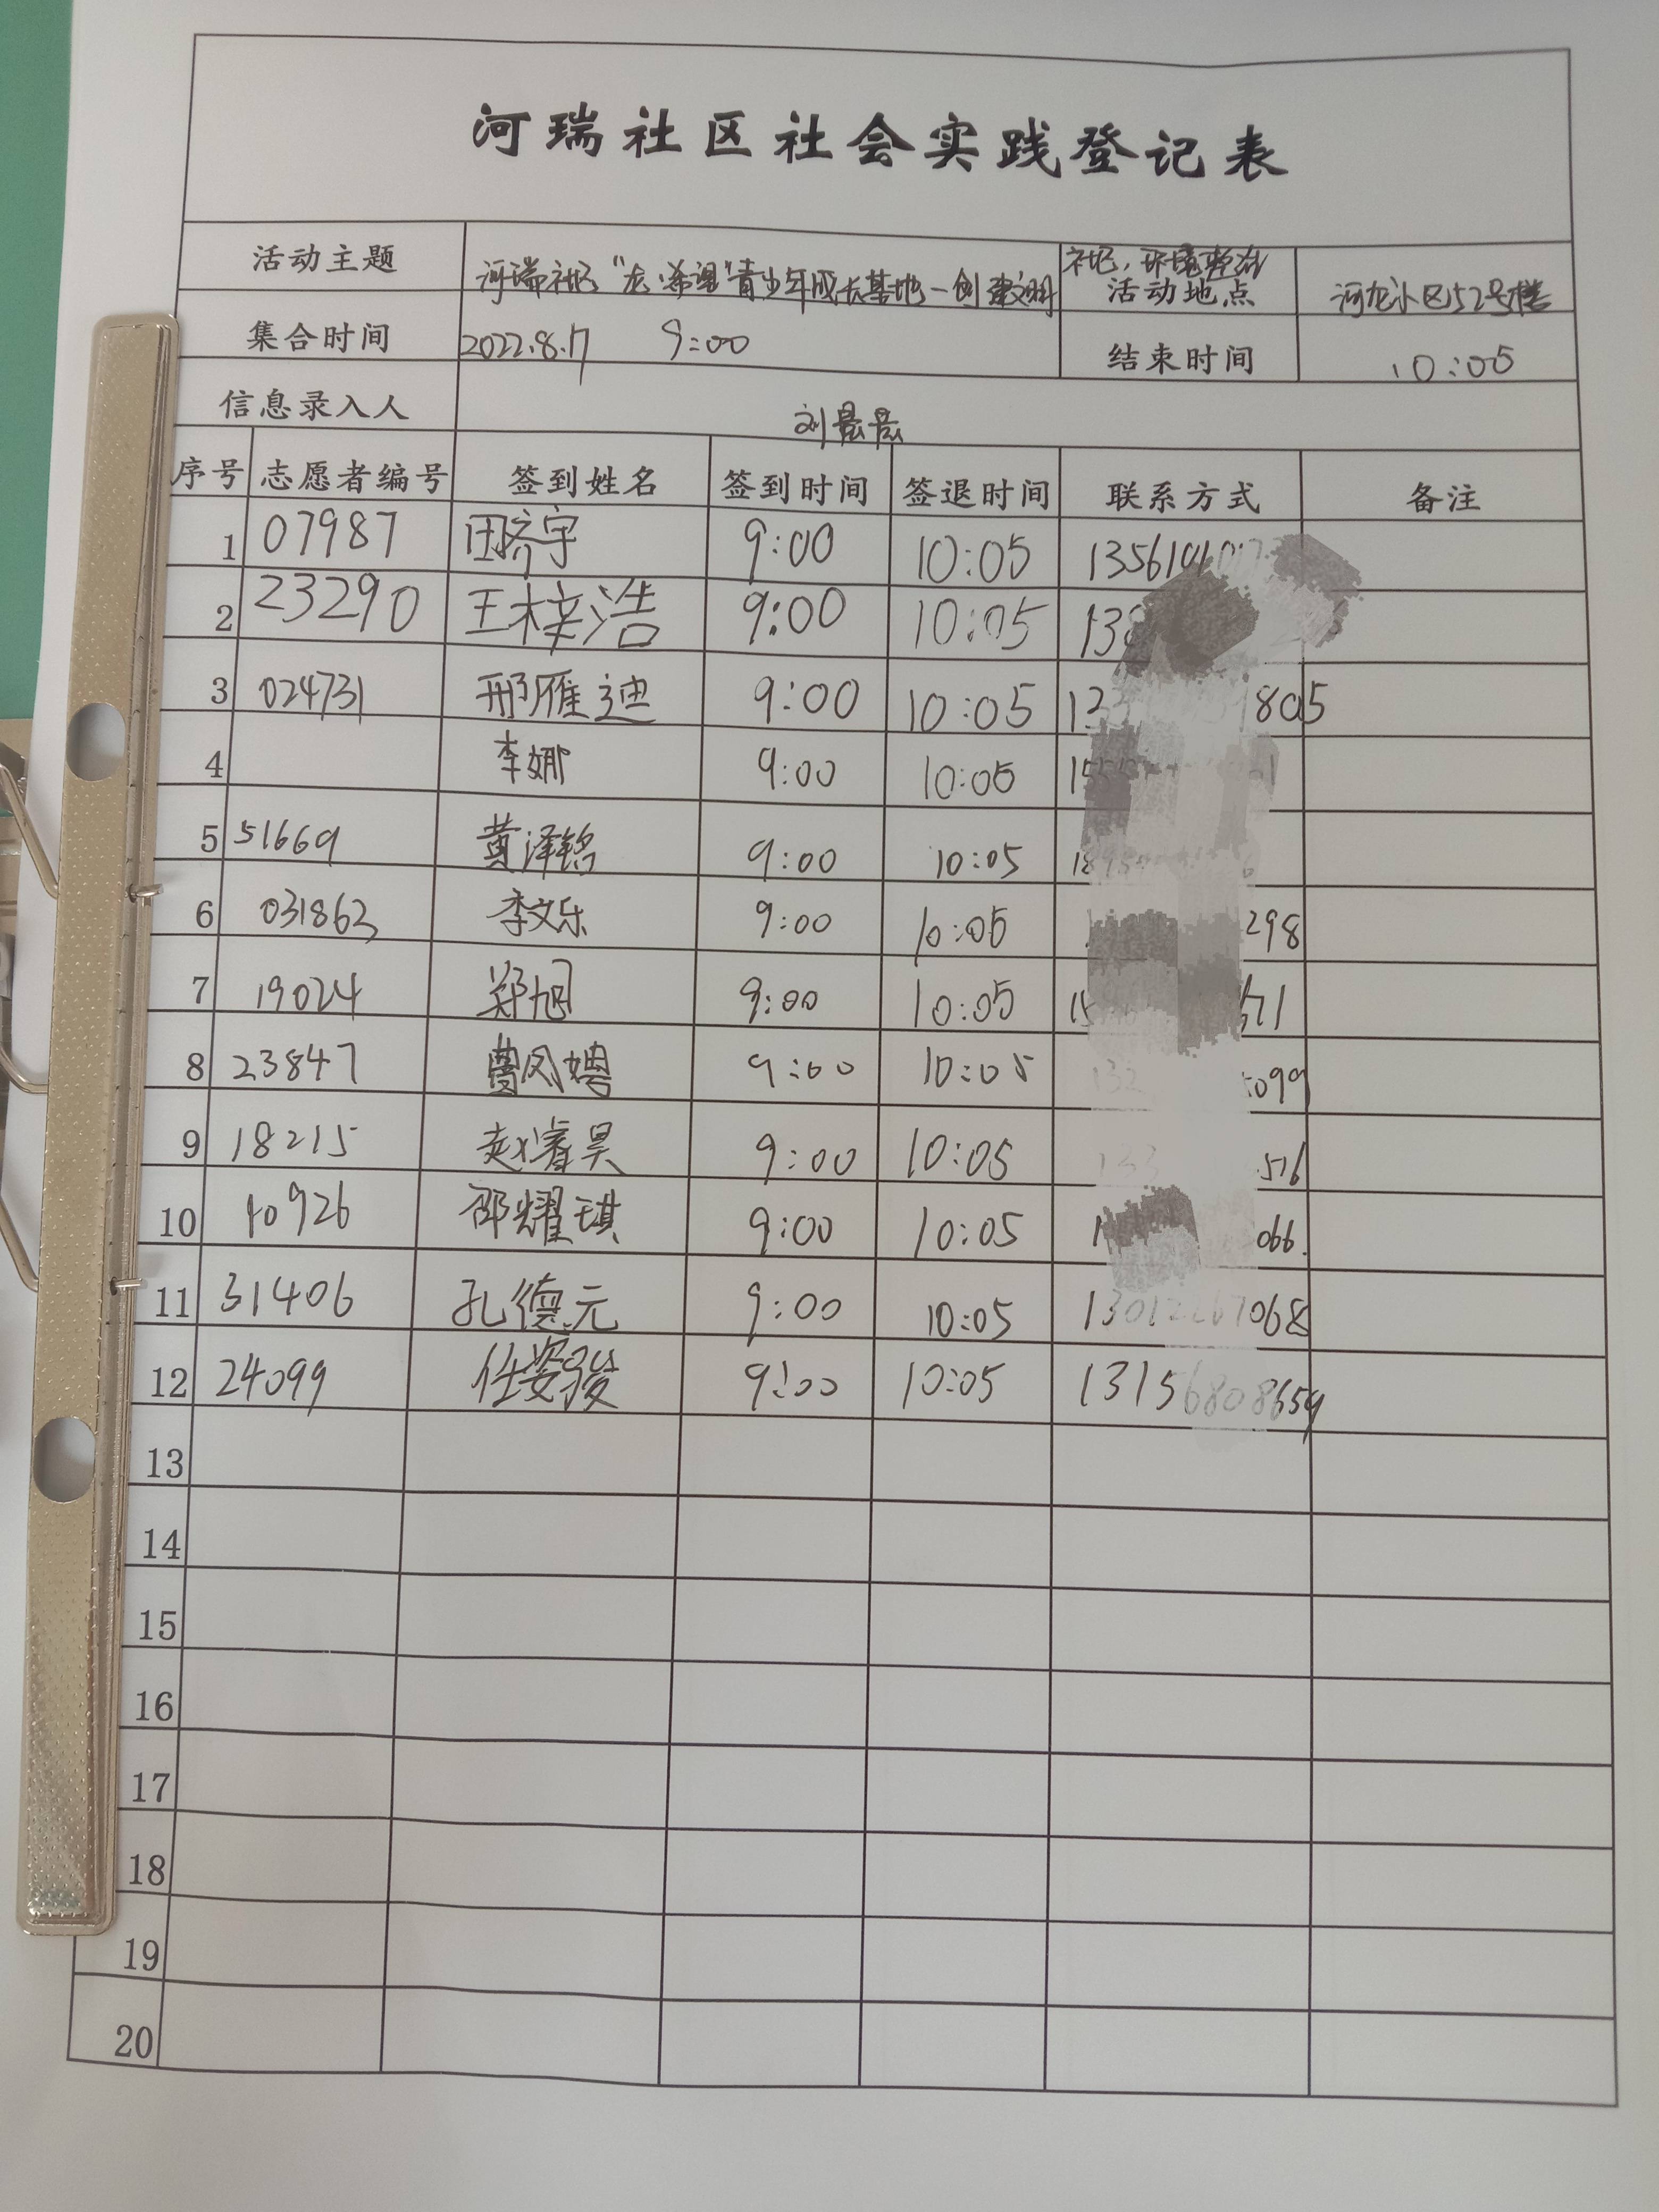 河瑞社区社会实践登记表
活动主题 河瑞社区“龙·希望”青少年成长基地-创建文明社区,环境整治 活动地点 河龙小区52号楼
集合时间 2022.8.17 9:00 结束时间 10:05
信息录入人 刘晨晨
序号 志愿者编号 签到姓名 签到时间 签退时间 联系方式 备注
1 07987 田济宇 9:00 10:05
2 23290 王梓浩 9:00 10:05
3 024731 邢雁迪 9:00 10:05 805
4 李娜 9:00 10:05
5 51669 黄泽铭 9:00 10:05
6 031863 李文乐 9:00 10:05 298
7 19024 郑旭 9:00 10:05
8 23847 曹凤娉 9:00 10:05 099
9 18215 赵睿昊 9:00 10:05 516
10 10926 邵耀琪 9:00 10:05 066
11 31406 孔德元 9:00 10:05 068
12 24099 任姿骏 9:00 10:05 1315 8659
13
14
15
16
17
18
19
20